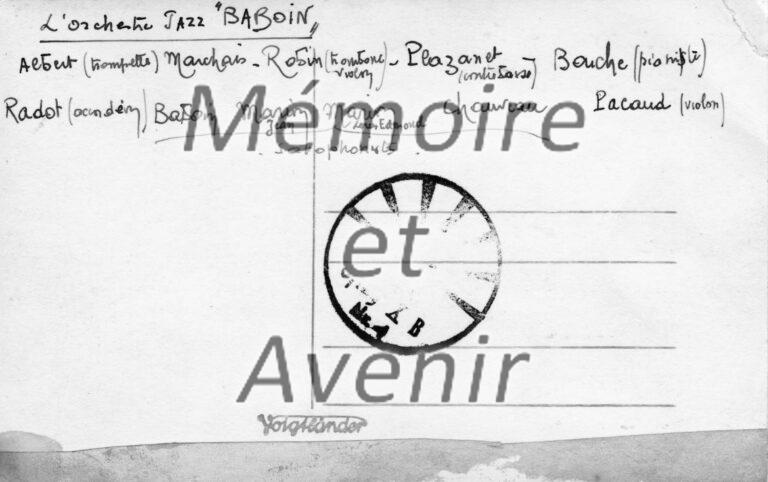 L'Orchestre JAZZ "BABOIN"
Albert (trompette) Marchais - Robin (trombone violon) - Plazanet (contrebasse) Bouche (pianiste)
Radot (accordéon) Baboin Marin Jean Marin Louis Edmond Chauveau Pacaud (violon)
saxophonistes
Mémoire
et
Avenir
No. 1
Voigtländer